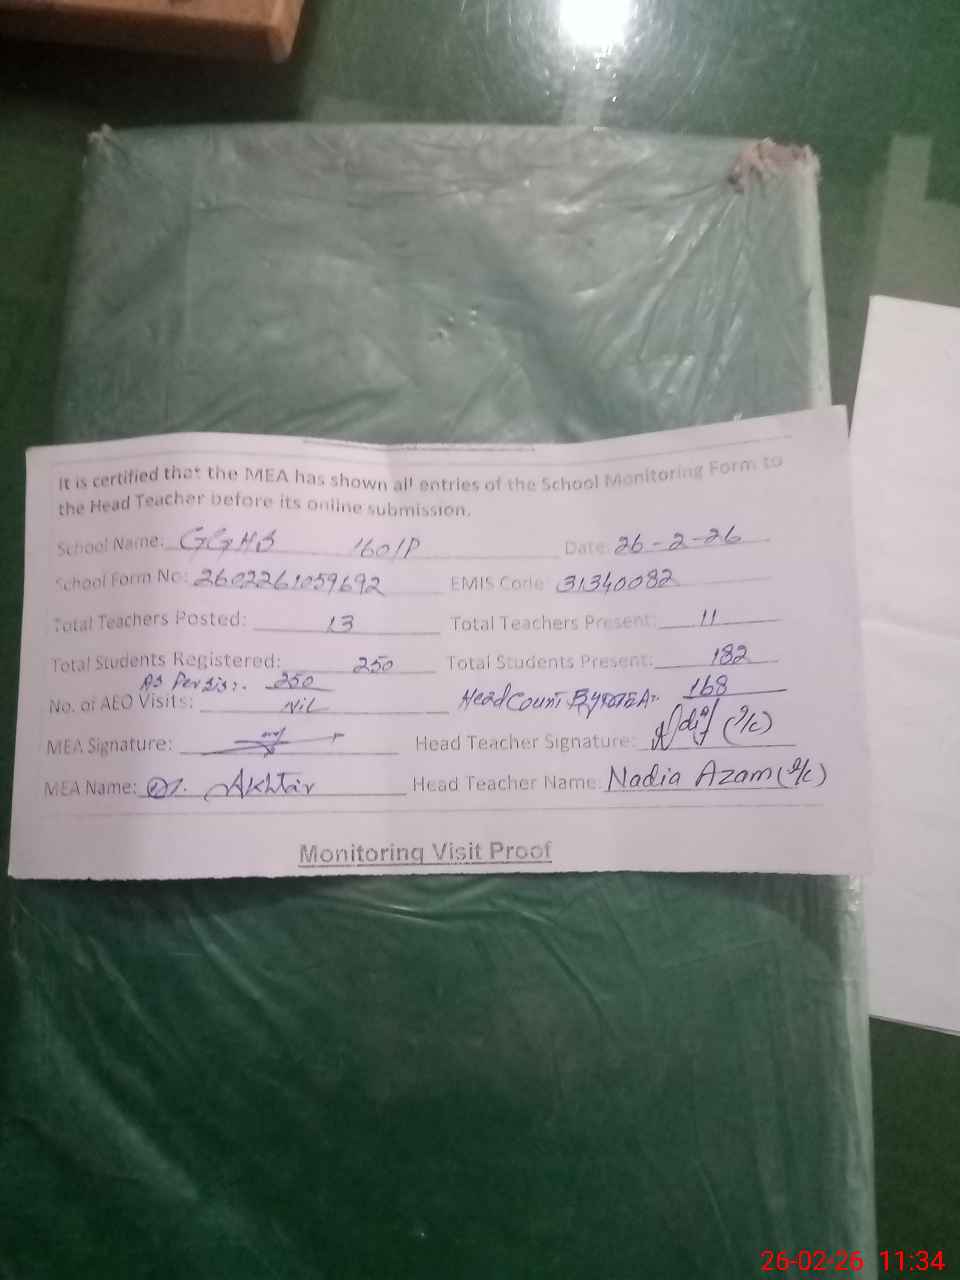 It is certified that the MEA has shown all entries of the School Monitoring Form to
the Head Teacher before its online submission.
School Name: GGHS 160/P Date: 26-2-26
School Form No: 2602261059692 EMIS Code 31340082
Total Teachers Posted: 13 Total Teachers Present: 11
Total Students Registered: 250 Total Students Present: 182
As Per Sis:. 250 Head Count By MEA:. 168
No. of AEO Visits: Nil
MEA Signature: Head Teacher Signature: (I/C)
MEA Name: Akhtar Head Teacher Name: Nadia Azam (I/C)
Monitoring Visit Proof
26-02-26 11:34